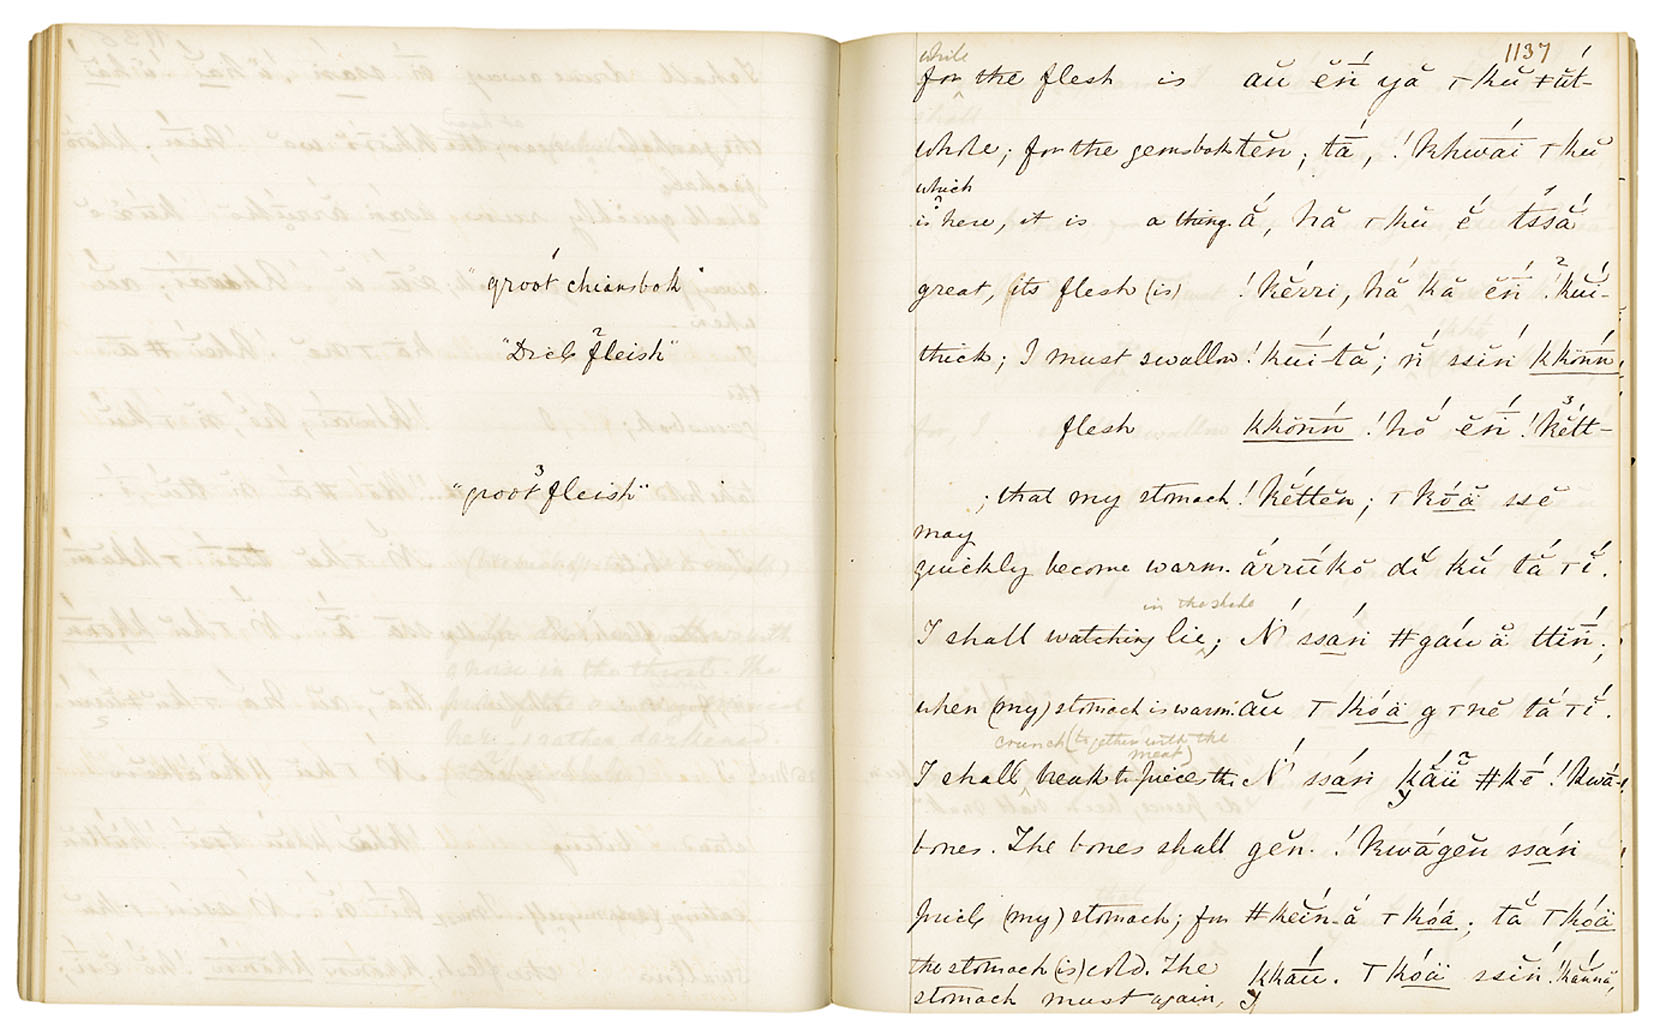 "groot chiansbok"
"Dick fleish"
"groot fleish"
1137
while
for the flesh is au ĕń yă ꞇ kŭ ǂŭt-
whole; for the gemsbok tĕn; tā́, !khwāí ꞇ kŭ
which
is here, it is a thing á̆, hă ꞇ kŭ ĕ́ t́ssá̆
great, its flesh (is) !kĕ́rri, hắ kă ĕń !kŭí-
thick; I must swallow !kuí-tắ; ń ssĕń kkŏn̄n
flesh kkŏn̄n !hŏ́ ĕń !kĕ́tt-
; that my stomach !kĕ́ttĕn; ꞇ kṓä ssĕ
may
quickly become warm. ắrrūkŏ dĭ kŭ́ tắ ꞇ ĭ́.
in the shade
I shall watching lie; Ń ssań ǂgaú ä ttĭń;
when (my) stomach is warm. aŭ ꞇ kóä g ꞇ nĕ tắ ꞇ ĭ́.
crunch (together with the
meat)
I shall break to pieces the Ń ssań kắü ǂkḗ !kwā́-
bones. The bones shall gĕn. !kwā́gĕn ssań
prick (my) stomach; for ǂkĕín-ă ꞇ kóä; tắ ꞇ kóä
the stomach (is) cold. The kkāú. ꞇ kóä ssĕń !kắună,
stomach must again,